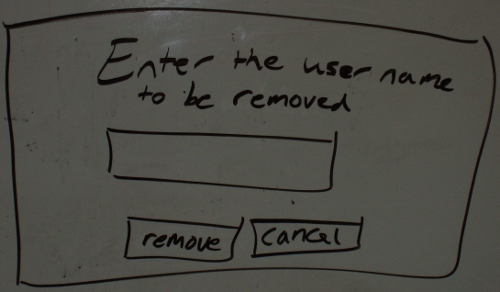 Enter the user name
to be removed
remove cancel